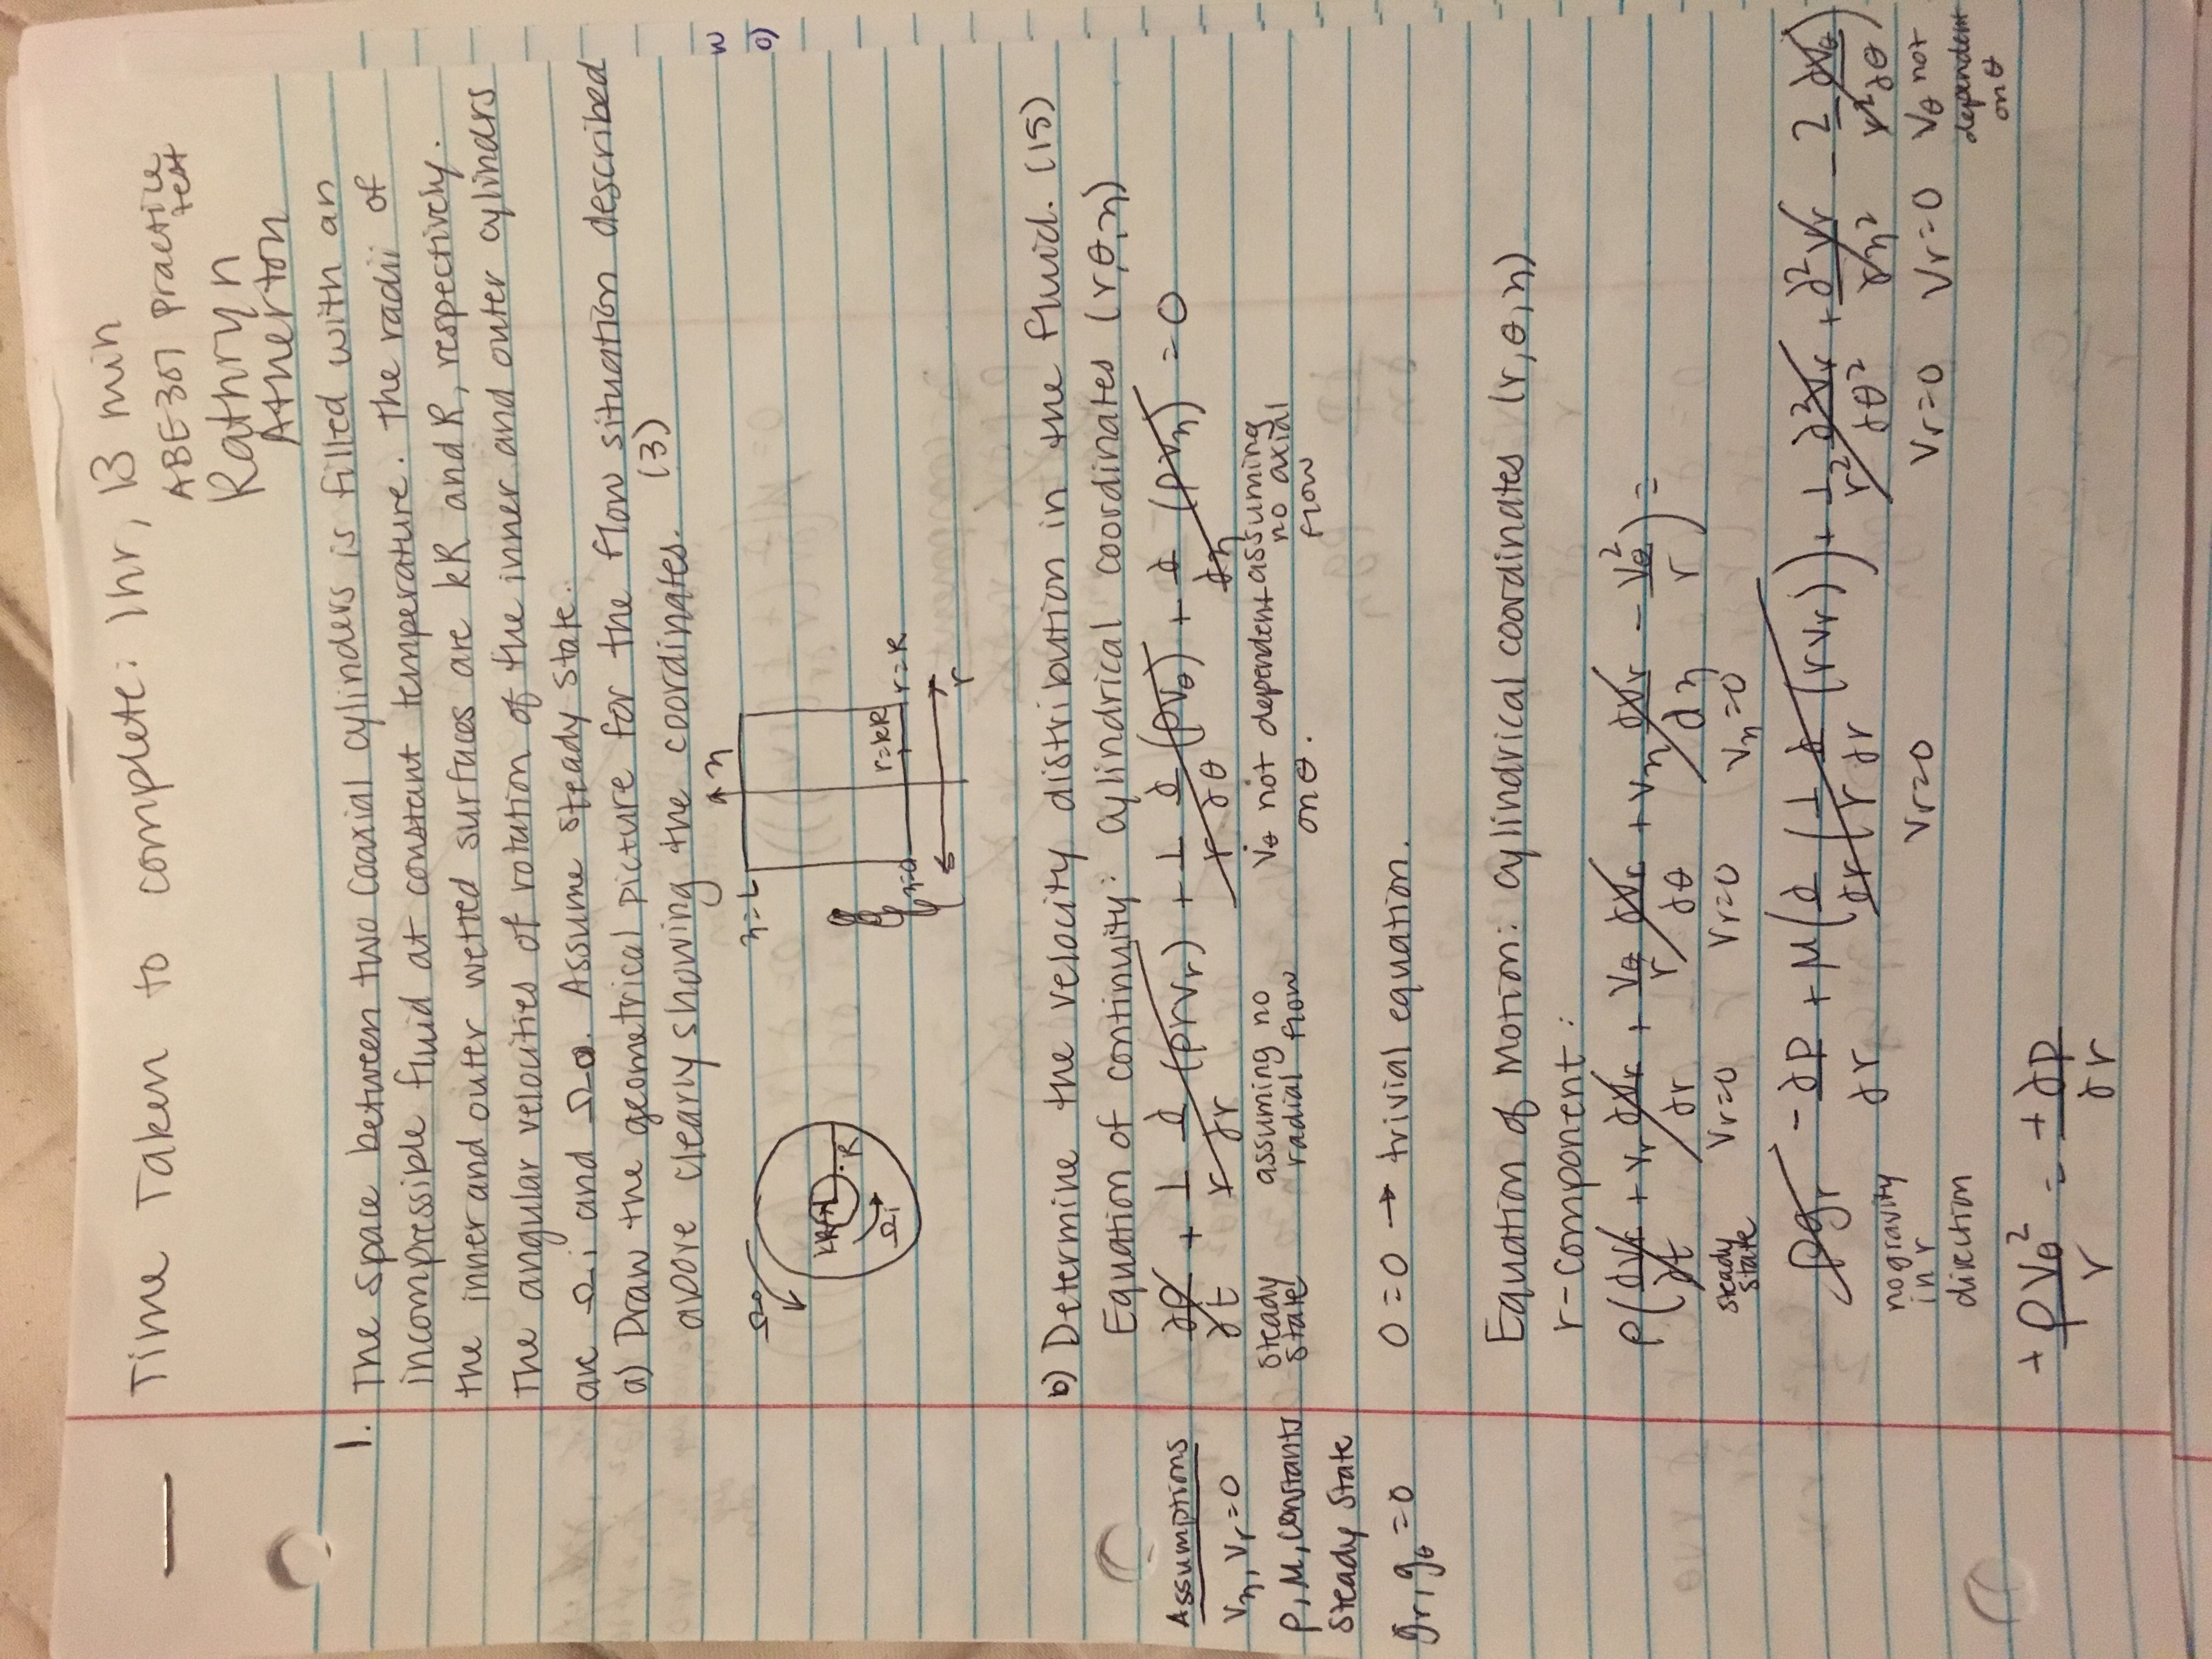 Time Taken to complete: 1hr, 13 min
ABE307 Practice test
Kathryn
Atherton
1. The space between two coaxial cylinders is filled with an
incompressible fluid at constant temperature. The radii of
the inner and outer wetted surfaces are kR and R, respectively.
The angular velocities of rotation of the inner and outer cylindrs
are Ωi and Ωo. Assume steady state.
a) Draw the geometrical picture for the flow situation described
above clearly showing the coordinates. (3)
Ωo
kR
R
Ωi
z
z=L
r=kR
z=0
r=R
r
b) Determine the velocity distribution in the fluid. (15)
Equation of continuity: cylindrical coordinates (r,θ,z)
∂ρ/∂t + 1/r ∂/∂r (ρrvr) + 1/r ∂/∂θ (ρvθ) + ∂/∂z (ρvz) = 0
steady state
assuming no radial flow
vθ not dependent on θ.
assuming no axial flow
Assumptions
vz, vr=0
ρ, μ, constants
Steady State
gr, gθ=0
0=0 → trivial equation.
Equation of Motion: cylindrical coordinates (r,θ,z)
r-component:
ρ(∂vr/∂t + vr ∂vr/∂r + vθ/r ∂vr/∂θ + vz ∂vr/∂z - vθ²/r) =
steady state
vr=0
vr=0
vz=0
ρgr - ∂p/∂r + μ(∂/∂r (1/r ∂/∂r (rvr)) + 1/r² ∂²vr/∂θ² + ∂²vr/∂z² - 2/r² ∂vθ/∂θ)
no gravity in r direction
vr=0
vr=0
vr=0
vθ not dependent on θ
+ρvθ²/r = +∂p/∂r